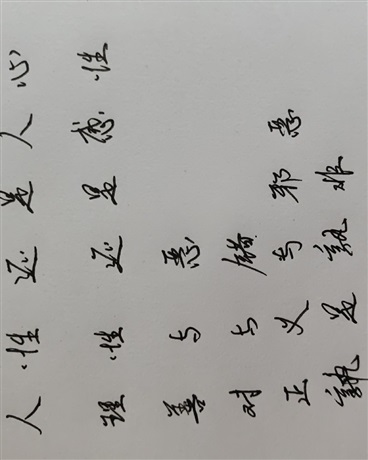 人性还是人心
理性还是感性
善与恶
对与错
正义与邪恶
孰是孰非